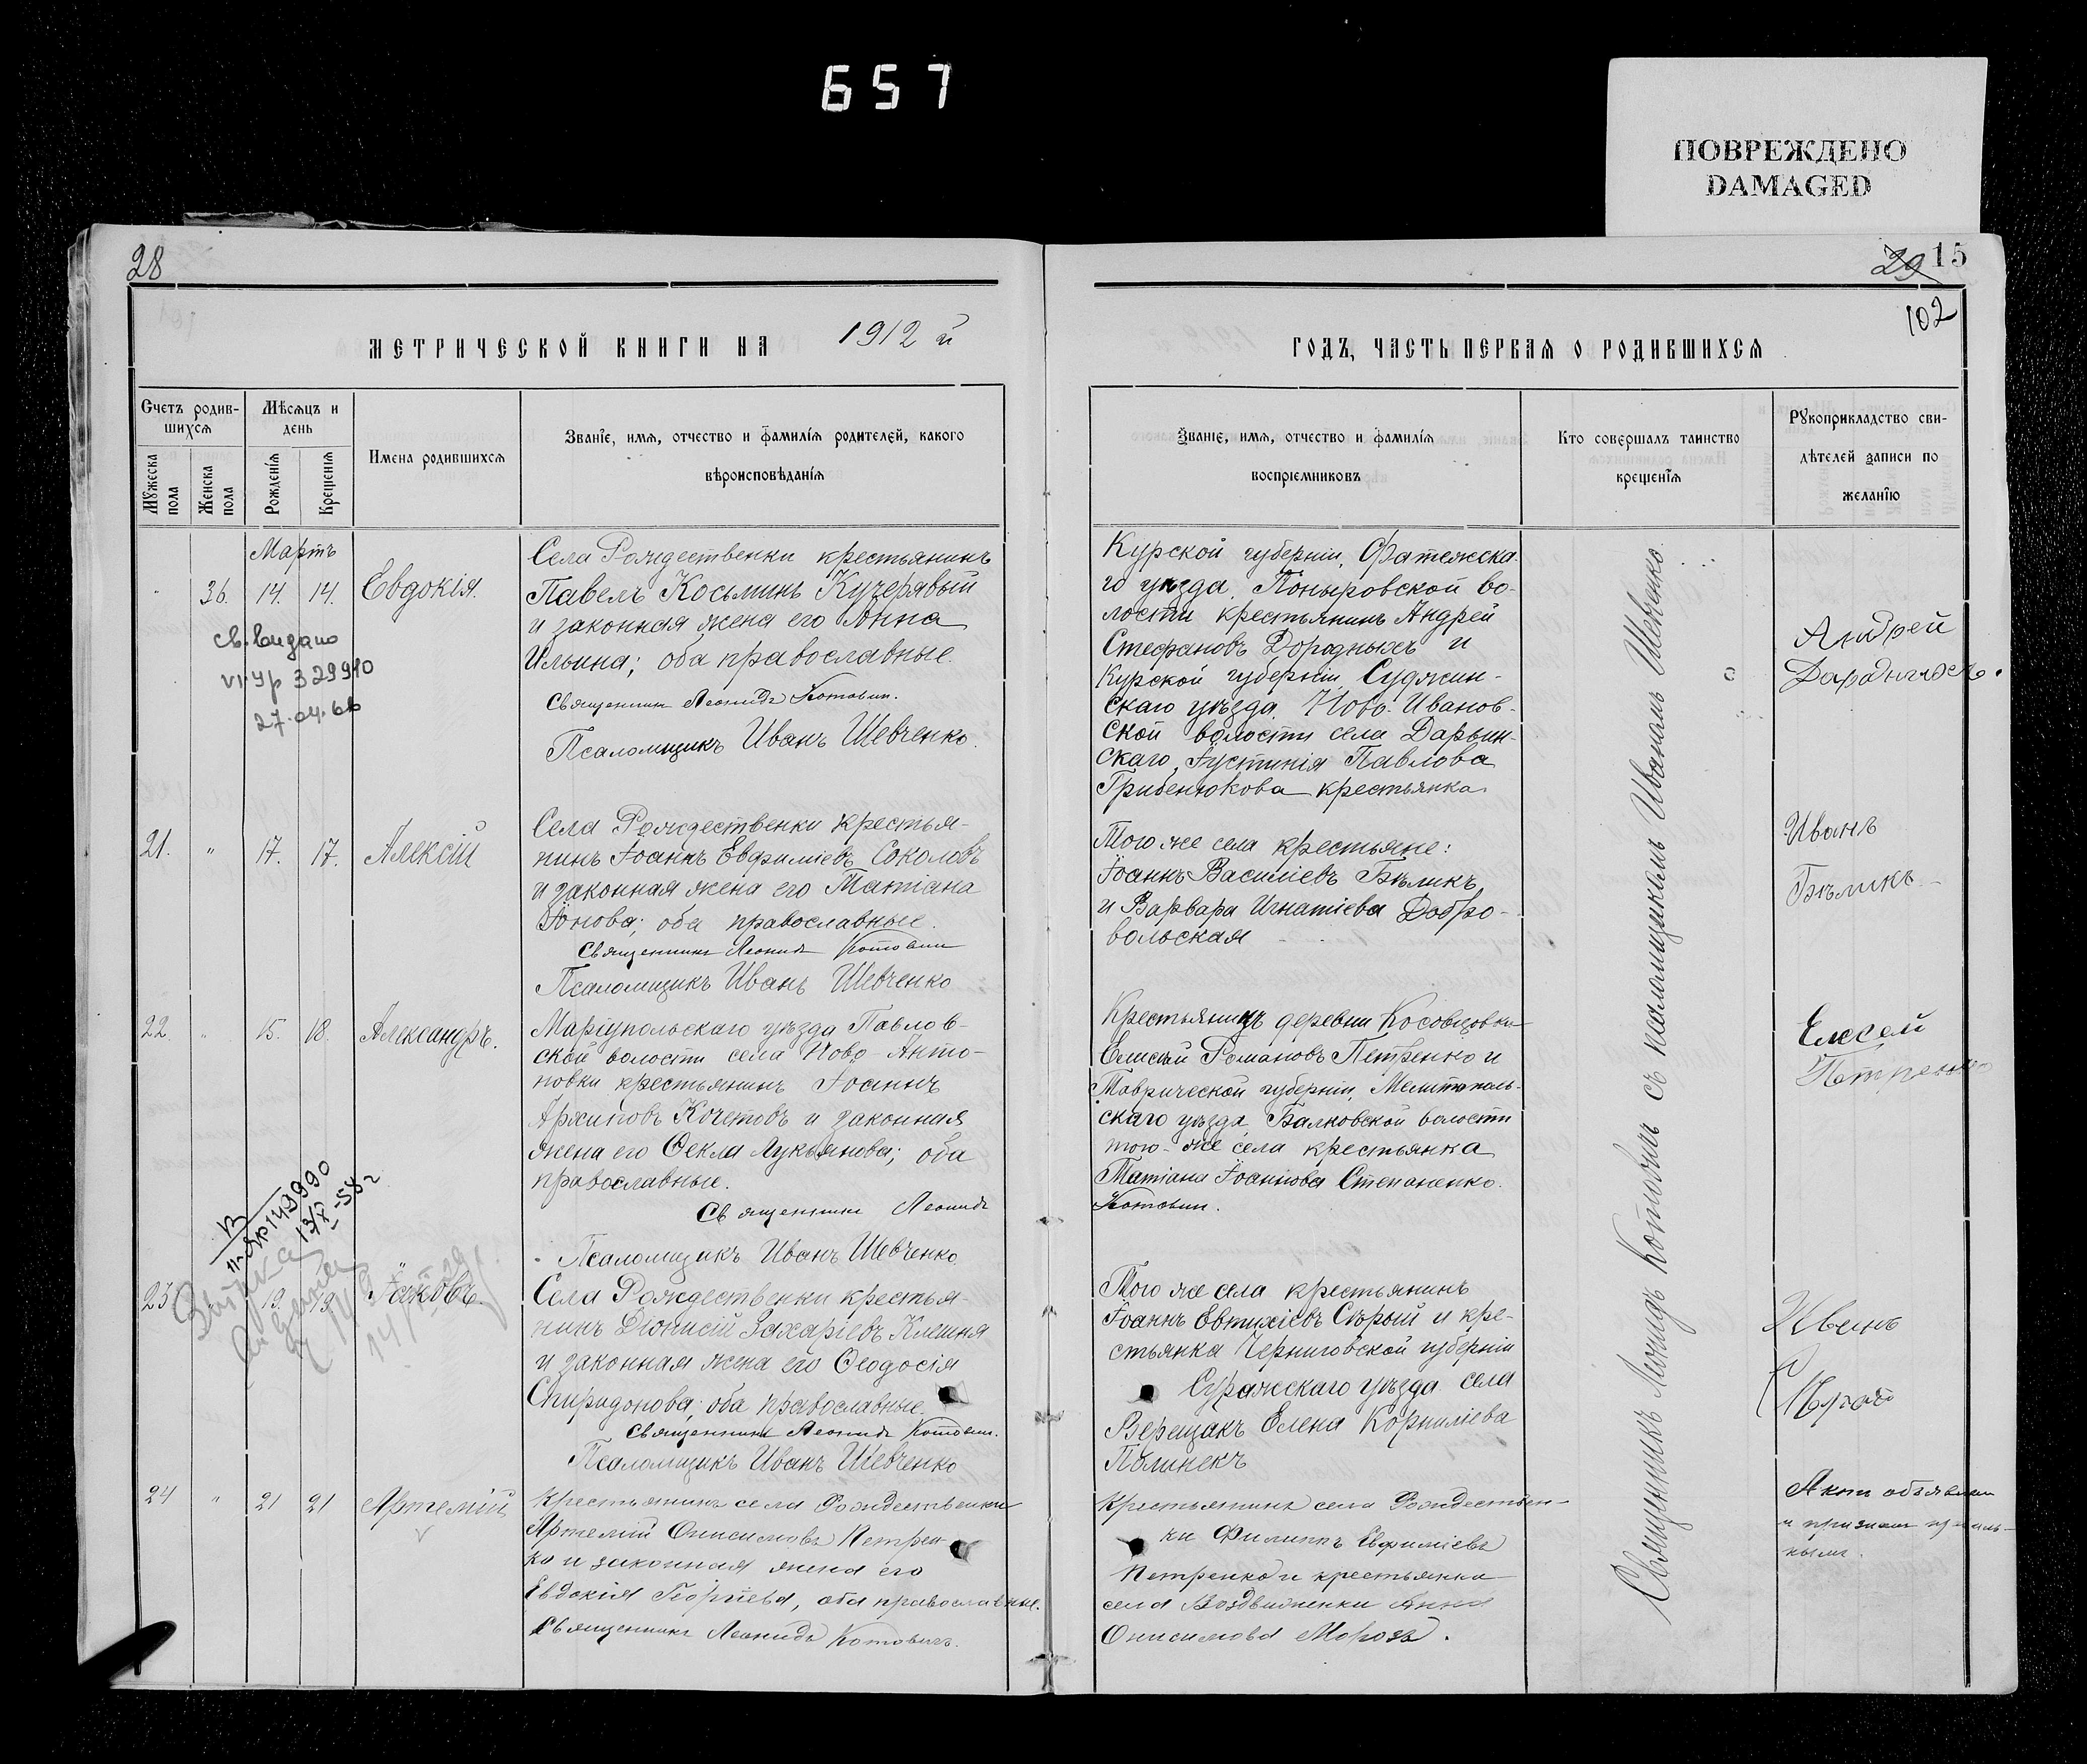 657
ПОВРЕЖДЕНО
DAMAGED
28
29 15
102
МЕТРИЧЕСКОЙ КНИГИ НА 1912 й
ГОДЪ, ЧАСТЬ ПЕРВАЯ О РОДИВШИХСЯ
Счетъ родив-
шихся
Мѣсяцъ и
день
Мужеска
пола
Женска
пола
Рожденія
Крещенія
Имена родившихся
Званіе, имя, отчество и фамилія родителей, какого
вѣроисповѣданія
Званіе, имя, отчество и фамилія
воспріемниковъ
Кто совершалъ таинство
крещенія
Рукоприкладство сви-
дѣтелей записи по
желанію
Мартъ
36. 14. 14. Евдокія.
св. выдано
VI УР 329910
27.04.66
Села Рождественки крестьянинъ
Павелъ Косьминъ Кучерявый
и законная жена его Анна
Ильина; оба православные.
Священникъ Леонидъ Котович.
Псаломщикъ Иванъ Шевченко.
Курской губерніи, Фатежска-
го уѣзда, Поныровской во-
лости крестьянинъ Андрей
Стефановъ Дородныхъ и
Курской губерніи Суджин-
скаго уѣзда, Ново-Иванов-
ской волости села Дарьин-
скаго, Іустинія Павлова
Грибенюкова крестьянка.
Андрей
21. " 17. 17. Алексій
Села Рождественки крестья-
нинъ Іоаннъ Евфиміевъ Соколовъ
и законная жена его Татіана
Іонова; оба православные.
Священникъ Леонидъ Котович
Псаломщикъ Иванъ Шевченко
Того же села крестьяне:
Іоаннъ Василіевъ Бѣликъ,
и Варвара Игнатіева Добро-
вольская
Иванъ
Бѣликъ
22. " 15. 18. Александръ.
Маріупольскаго уѣзда Павлов-
ской волости села Ново-Анто-
новки крестьянинъ Іоаннъ
Архиповъ Кочетовъ и законная
жена его Ѳекла Лукьянова; оба
православные.
Священникъ Леонидъ
Котович.
Псаломщикъ Иванъ Шевченко
Крестьянинъ деревни Косовцовки
Елисей Романовъ Петренко и
Таврической губерніи, Мелитополь-
скаго уѣзда, Балковской волости
того-же села крестьянка
Татіана Іоаннова Степаненко.
Елесей
Петренко
23 19. 19. Іаковъ.
Села Рождественки крестья-
нинъ Діонисій Захаріевъ Клешня
и законная жена его Ѳеодосія
Спиридонова; оба православные.
Священникъ Леонидъ Котович.
Псаломщикъ Иванъ Шевченко
Того же села крестьянинъ
Іоаннъ Евтихіевъ Сѣрый и кре-
стьянка Черниговской губерніи
Суражскаго уѣзда села
Верещакъ Елена Корниліева
Полинекъ
24 " 21 21 Артемій
Крестьянинъ села Рождественки
Артемій Онисимовъ Петрен-
ко и законная жена его
Евдокія Георгіева, оба православные.
Священникъ Леонидъ Котовичъ.
Крестьянинъ села Рождествен-
ки Филиппъ Евфиміевъ
Петренко и крестьянка
села Воздвиженки Анна
Онисимова Морозъ.
Священникъ Леонидъ Котовичъ съ псаломщикомъ Иваномъ Шевченко